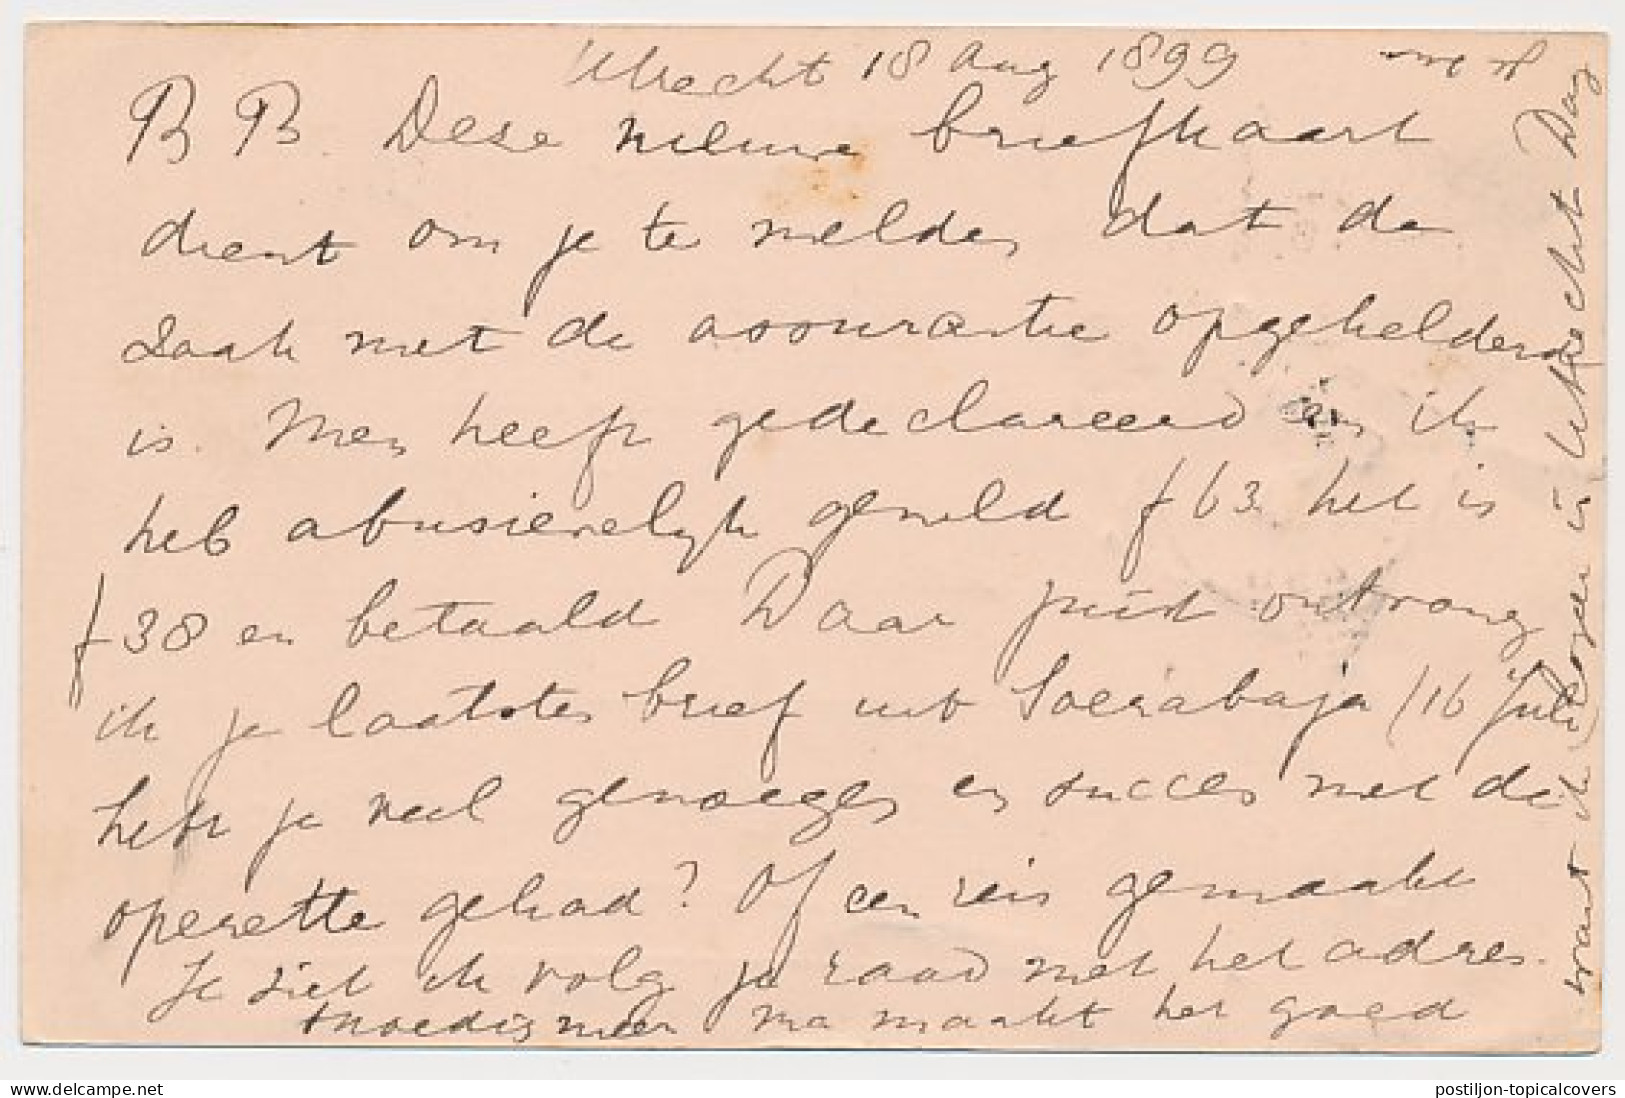 Utrecht 18 Aug 1899
B B. Deze nieuwe briefkaart
dient om je te melden dat de
Zaak met de assurantie opgehelderd
is. Men heeft gedeclareerd en ik
heb abusievelijk gemeld f 63 het is
f 38 en betaald Daar juist ontvang
ik je laatsten brief uit Soerabaja (16 Juli)
hebt je veel genoegen en succes met de
operette gehad? Of een reis gemaakt
Je ziet ik volg je raad met het adres.
Ma maakt het goed
want ik logeer in Utrecht Dag